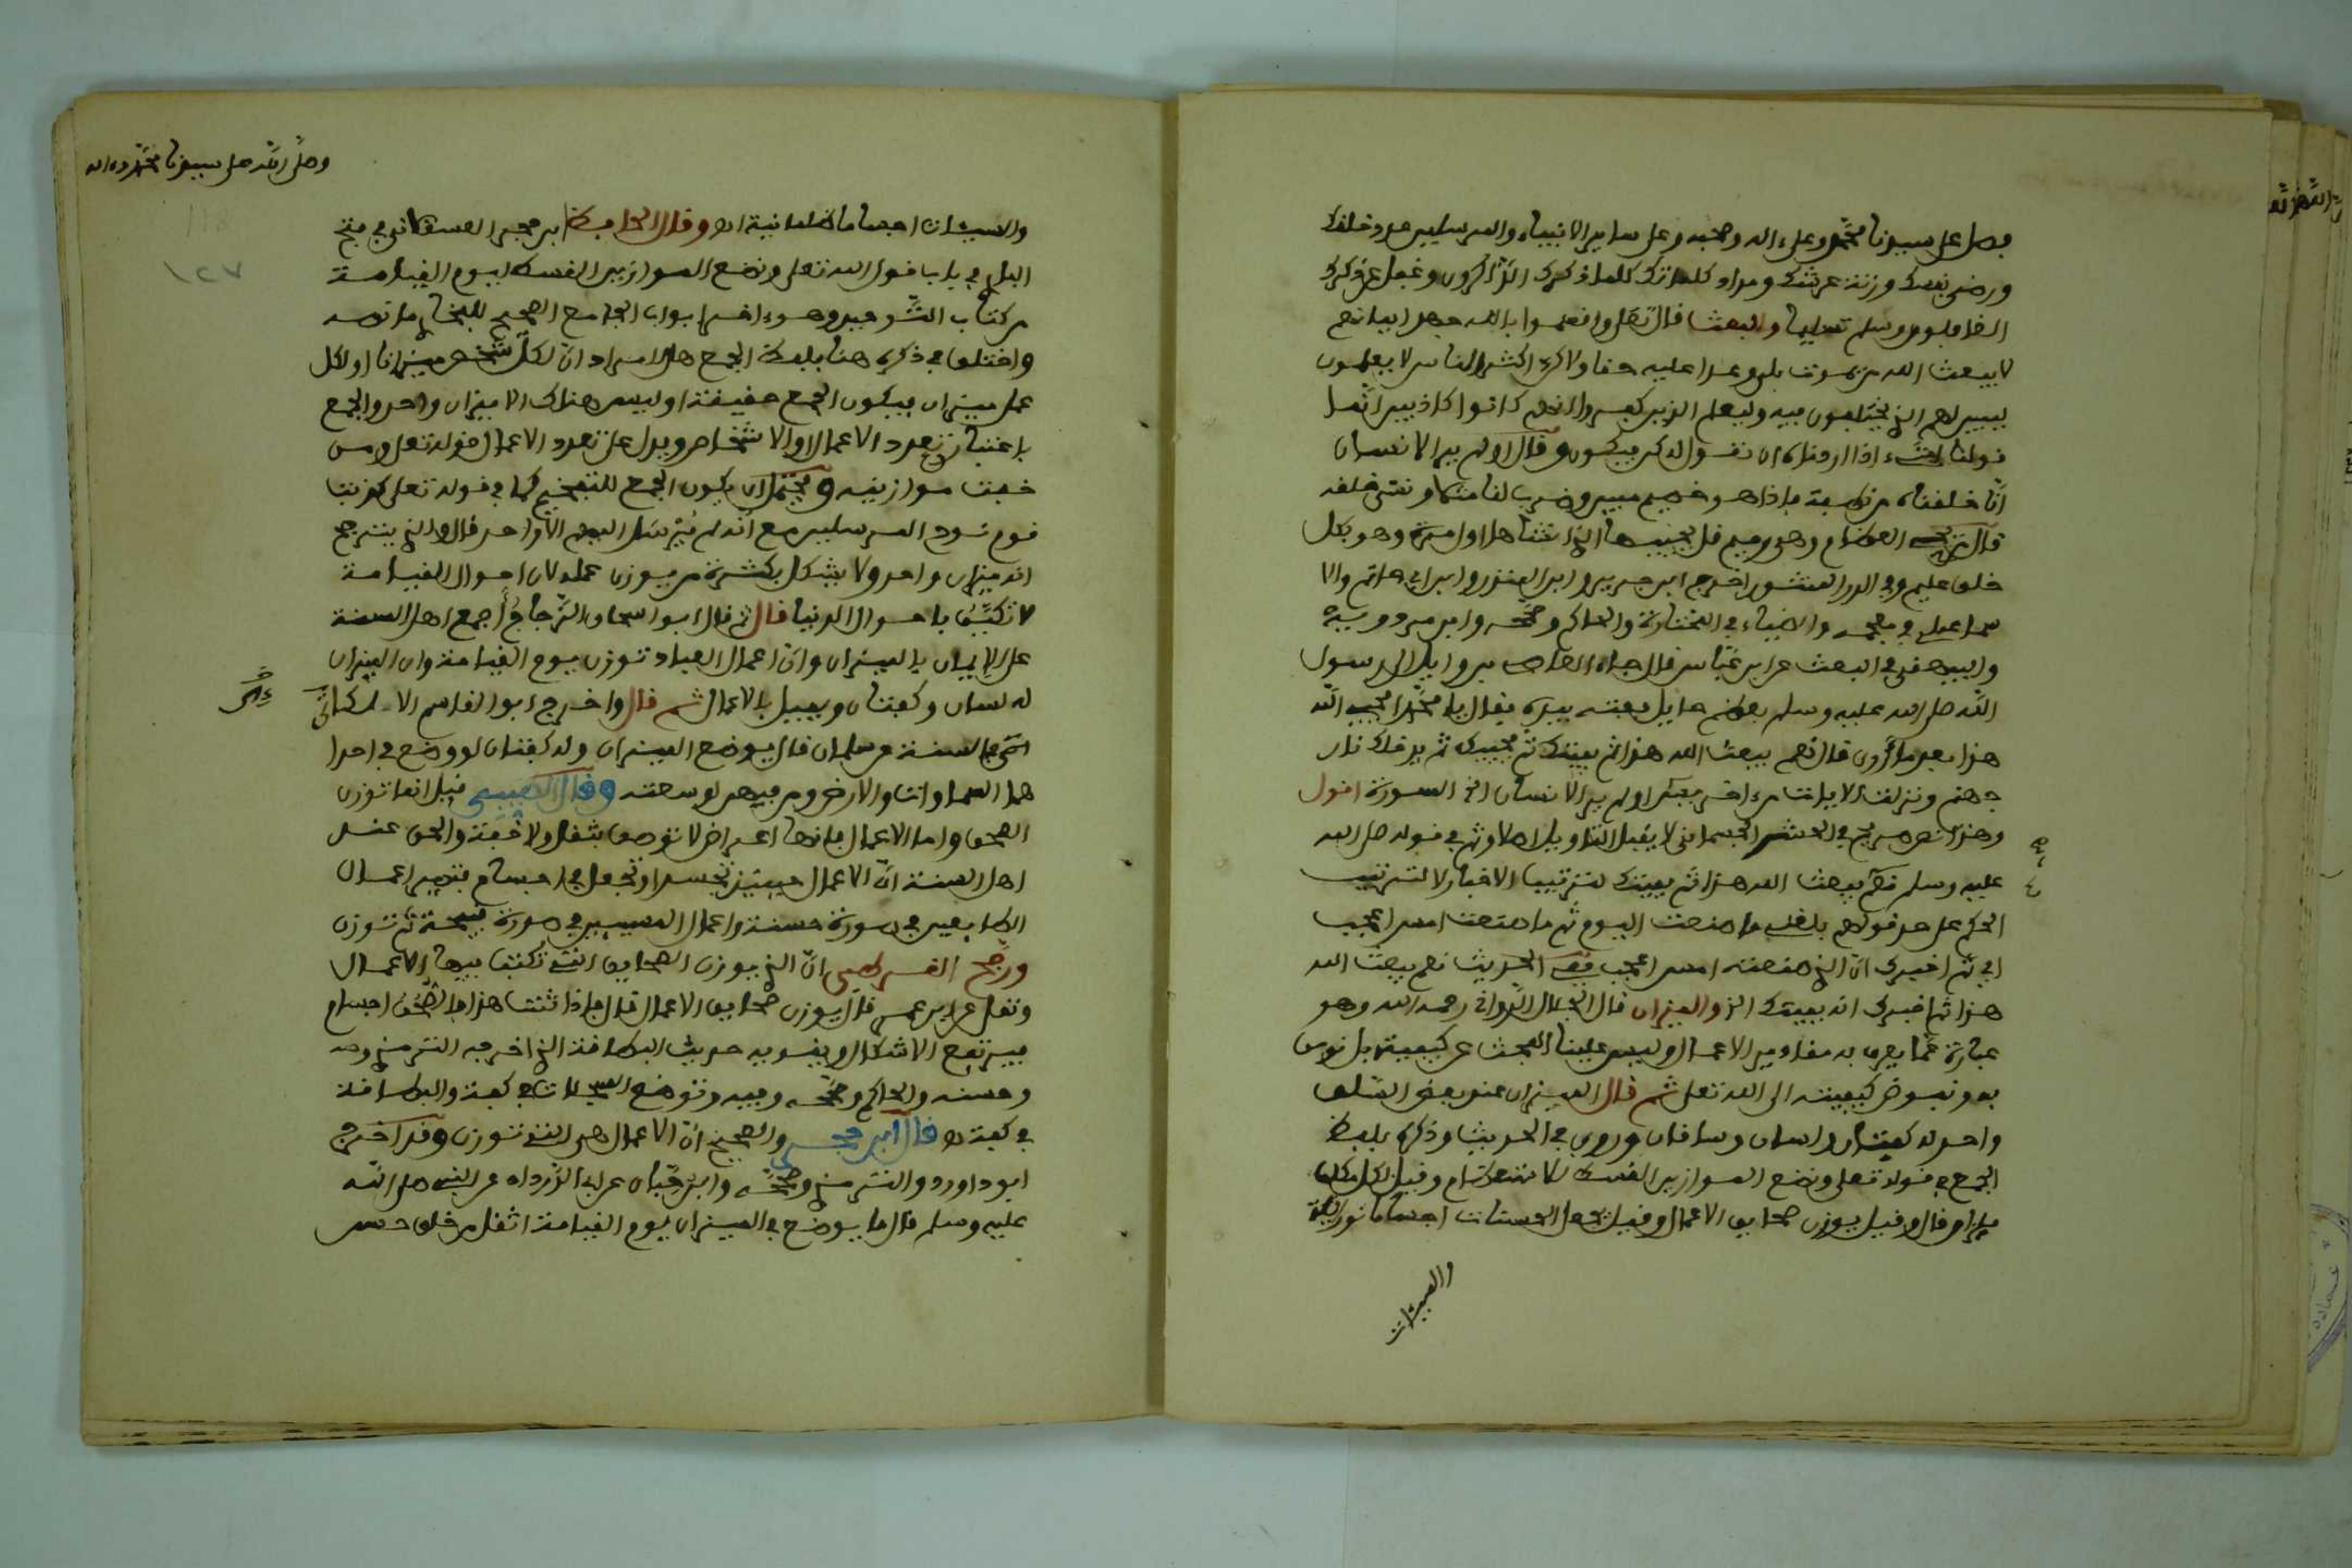 فصل على سيدنا محمد وعلى اله وصحبه وعلى ساير الانبياء والمرسلين عدد خلقك
ورضى نفسك وزنة عرشك ومداد كلماتك كلما ذكرك الذاكرون وغفل عن ذكرك
الغافلون وسلم تسليما والبعث قال تعلى وافسموا بالله جهد ايمانهم
لا يبعث الله من يموت بلى وعدا عليه حقا ولاكن اكثر الناس لا يعلمون
ليبين لهم الذي يختلفون فيه وليعلم الذين كفروا انهم كانوا كاذبين انما
قولنا لشيء اذا اردناه ان نقول له كن فيكون وقال اولم ير الانسان
انا خلقناه من نطفة فاذا هو خصيم مبين وضرب لنا مثلا ونسي خلقه
قال من يحي العظام وهي رميم قل يحييها الذي انشاها اول مرة وهو بكل
خلق عليم وفي الدر المنثور اخرج ابن جرير وابن المنذر وابن ابي حاتم والا
سماعيلي في معجمه والضياء في المختارة والحاكم وصححه وابن مردويه
والبيهقي في البعث عن ابن عباس قال جاء العاص بن وايل الى رسول
الله صلى الله عليه وسلم بعظم حايل ففته بيده فقال يا محمد ايحيي الله
هذا بعد ما ارى قال نعم يبعث الله هذا ثم يميتك ثم يحييك ثم يدخلك نار
جهنم ونزلت الايات من ءاخر يس اولم ير الانسان الى اخر السورة اقول
وهذا نص صريح في الحشر الجسماني لا يقبل التاويل اصلا وثم في قوله صلى الله
عليه وسلم نعم يبعث الله هذا ثم يميتك لترتيب الاخبار لا لترتيب
الحكم على حد قولهم بلغني ما صنعت اليوم ثم ما صنعت امس اعجب
اي ثم اخبرك ان الذي صنعته امس اعجب فمعنى الحديث نعم يبعث الله
هذا ثم اخبرك انه يميتك الخ والميزان قال الجلال الدواني رحمه الله وهو
عبارة عما يعرف به مقادير الاعمال وليس علينا البحث عن كيفيته بل نومن
به ونفوض كيفيته الى الله تعلى ثم قال الميزان عند بعض السلف
واحد له كفتان ولسان وساقان وروي في الحديث وذكره بلفظ
الجمع في قوله تعلى ونضع الموازين القسط للاستعظام وقيل لكل مكلف
ميزان قال وقيل يوزن صحايف الاعمال وقيل تجعل الحسنات اجساما نورانية
والسيئات
وصلى الله على سيدنا محمد وءاله
والسيئات اجساما ظلمانية اه وقال الحافظ ابن حجر العسقلاني في فتح
الباري باب قول الله تعلى ونضع الموازين القسط ليوم القيامة
من كتاب التوحيد وهو ءاخر ابواب الجامع الصحيح للبخاري ما نصه
واختلف في ذكره هنا بلفظ الجمع هل المراد ان لكل شخص ميزانا او لكل
عمل ميزان فيكون الجمع حقيقة او ليس هناك الا ميزان واحد والجمع
باعتبار تعدد الاعمال او الاشخاص ويدل على تعدد الاعمال قوله تعلى ومن
خفت موازينه ويحتمل ان يكون الجمع للتفخيم كما في قوله تعلى كذبت
قوم نوح المرسلين مع انه لم يرسل اليهم الا واحد قال والذي يترجح
انه ميزان واحد ولا يشكل بكثرة من يوزن عمله لان احوال القيامة
لا تكيف باحوال الدنيا قال ثم قال ابو اسحاق الزجاج اجمع اهل السنة
على الايمان بالميزان وان اعمال العباد توزن يوم القيامة وان الميزان
له لسان وكفتان ويميل بالاعمال ثم قال واخرج ابو القاسم الالكائي
في السنة عن سلمان قال يوضع الميزان وله كفتان لو وضع في احدا
هما السماوات والارض ومن فيهن لوسعته وقال الطيبي قيل انما توزن
الصحف واما الاعمال فانها اعراض لا توصف بثقل ولا خفة والحق عند
اهل السنة ان الاعمال حينئذ تجسد او تجعل في اجسام فتصير اعمال
الطايعين في صورة حسنة واعمال المسيئين في صورة قبيحة ثم توزن
ورجح القرطبي ان الذي يوزن الصحايف التي تكتب فيها الاعمال
ونقل عن ابن عمر قال يوزن صحايف الاعمال قال فاذا ثبت هذا فالصحف اجسام
فيرتفع الاشكال ويقويه حديث البطاقة الذي اخرجه الترمذي
وحسنه والحاكم وصححه وفيه وتوضع السجلات في كفة والبطاقة
في كفة اه قال ابن حجر والصحيح ان الاعمال هي التي توزن وقد اخرج
ابو داوود والترمذي وصححه وابن حبان عن ابي الدرداء عن النبي صلى الله
عليه وسلم قال ما يوضع في الميزان يوم القيامة اثقل من خلق حسن